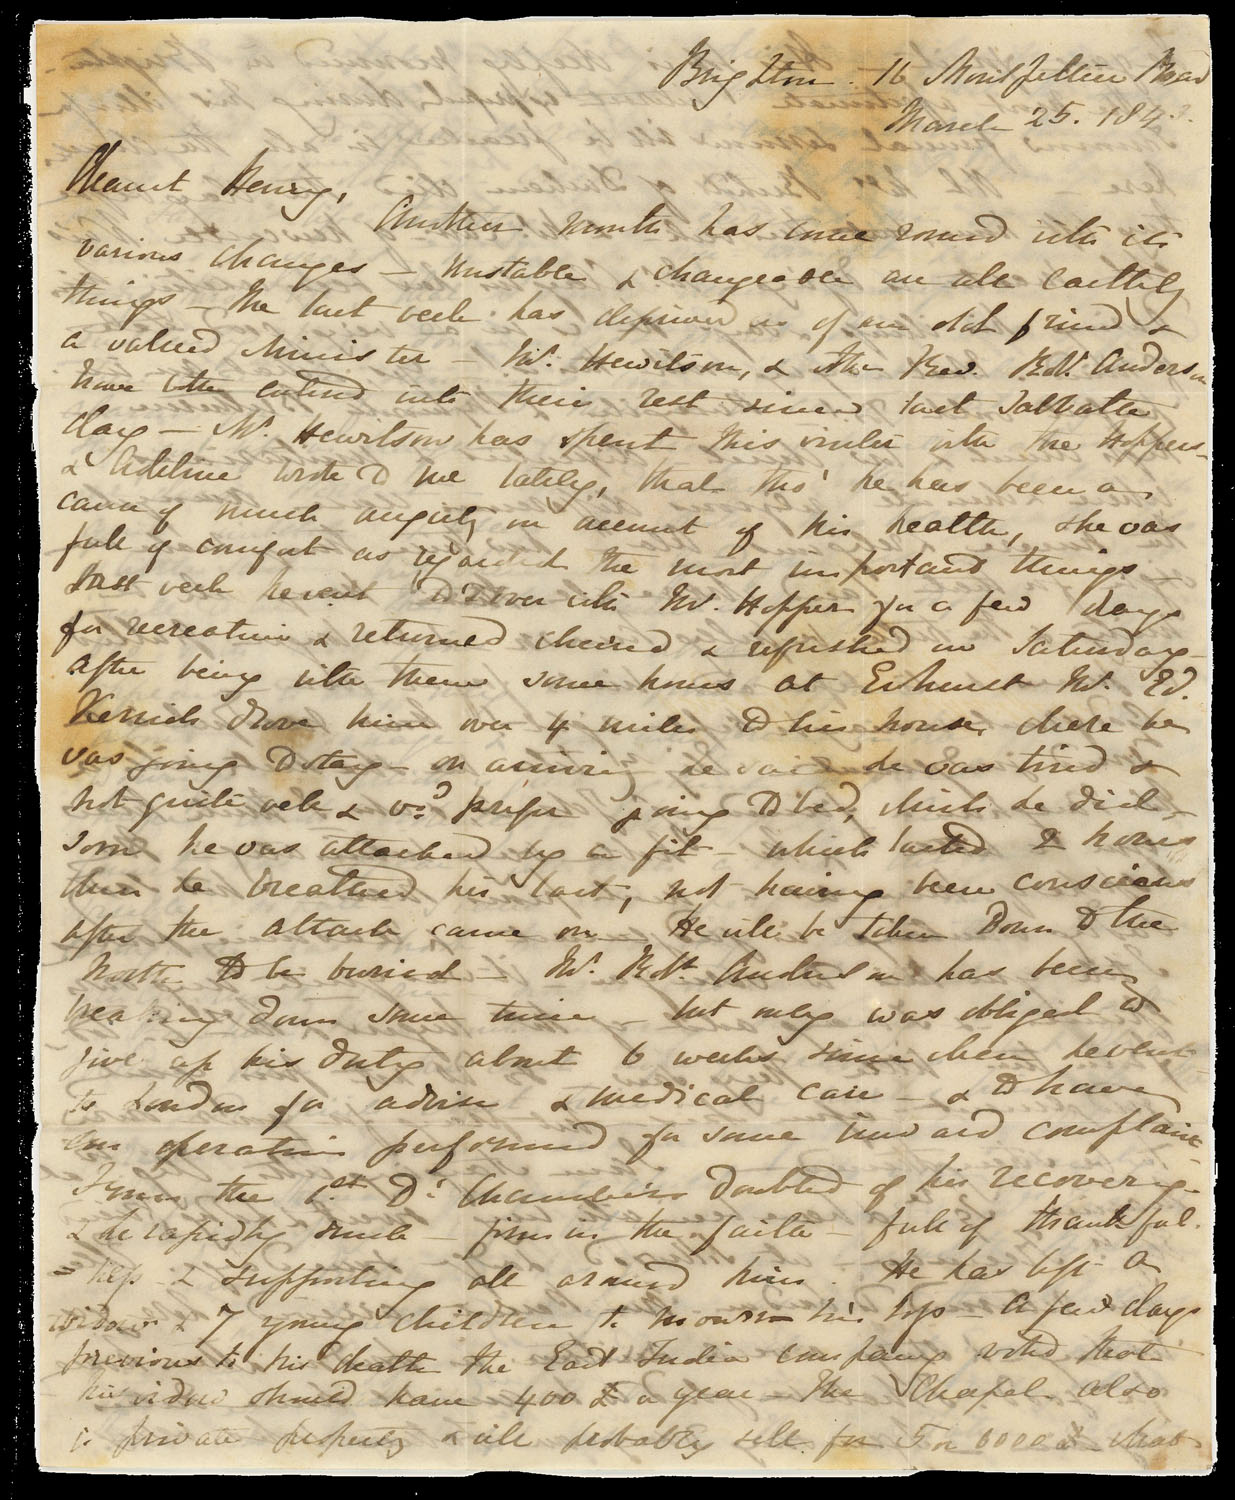 Brighton. 16 Montpellier Road
March 25. 184
Dearest Henry,
Another month has come round with its
various changes — Unstable & changeable are all earthly
things — The last week has deprived us of an old friend &
a valued Minister — Mr. Hewitson, & the Rev. Robt. Anderson
have both entered into their rest since last Sabbath
day — Mr. Hewitson has spent this winter with the Hoppers
& Adeline wrote to me lately, that tho' he has been a
cause of much anxiety on account of his health, she was
full of comfort as regarded the most important things —
Last week he went to Dover with Mr. Hopper for a few days
for recreation & returned cheered & refreshed on Saturday —
After being with them some hours at Ewhurst Mr. Ed.
Kerrich drove him over 4 miles to his house, where he
was going to stay — on arriving he said he was tired &
not quite well & wd. prefer going to bed, which he did —
soon he was attacked by a fit — which lasted 2 hours
then he breathed his last, not having been conscious
after the attack came on — He will be taken down to the
North to be buried — Mr. Robt. Anderson has been
breaking down some time — but only was obliged to
give up his duty about 6 weeks since when he went
to London for advice & medical care — & to have
an operation performed for some inward complaint
From the 1st Dr. Chambers doubted of his recovery —
& he rapidly sunk — firm in the faith — full of thankful
= ness & supporting all around him. He has left a
widow & 7 young children to mourn his loss — A few days
previous to his death the East India company voted that
his widow should have 400 £ a year — The Chapel also
is private property & will probably sell for 5 or 6000 £